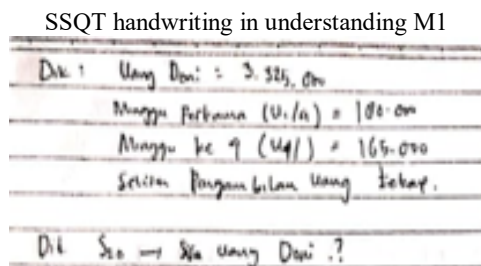 SSQT handwriting in understanding M1
Dik : Uang Doni : 3.325.000
Minggu Pertama (U1/a) = 100.000
Minggu ke 9 (U9/) = 165.000
Selisih Pengambilan Uang tetap.
Dit S20 → Sisa Uang Doni .?